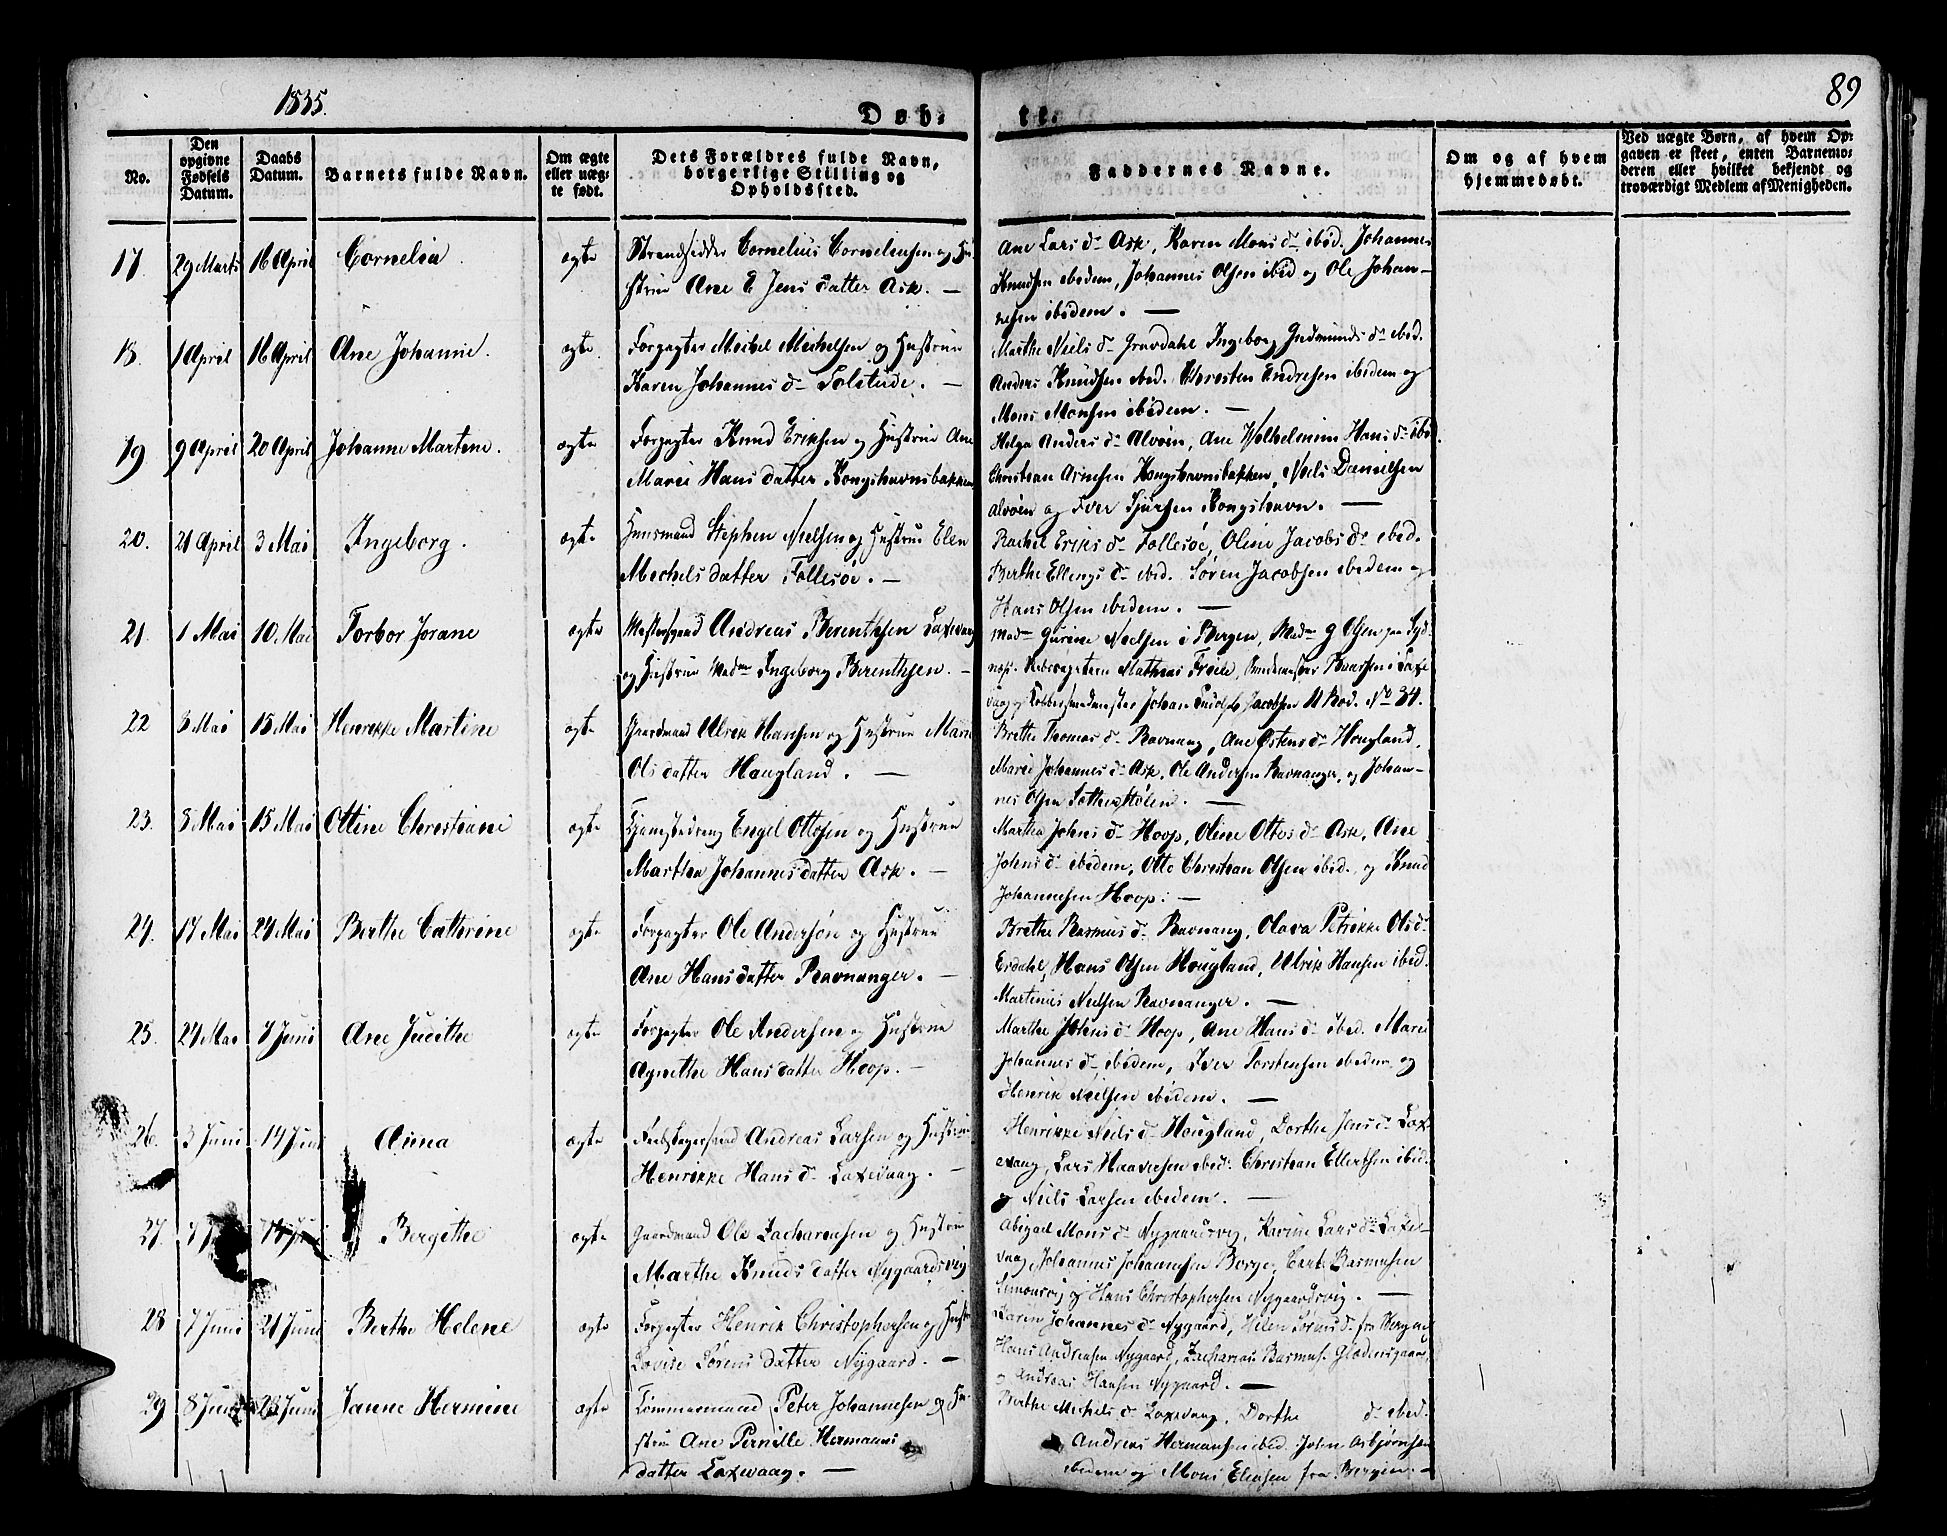 1835.
Døb-
te.
89
No.
Den opgivne Fødsels Datum.
Daabs Datum.
Barnets fulde Navn.
Om ægte eller uægte født.
Dets Forældres fulde Navn, borgerlige Stilling og Opholdssted.
Faddernes Navne.
Om og af hvem hjemmedøbt.
Ved uægte Børn, af hvem Opgaven er skeet, enten Barnemoderen eller hvilket bekjendt og troværdigt Medlem af Menigheden.
17. 29 Marts 16 April Cornelia. ægte
Strandsidder Cornelius Corneliussen og Hu-
strue Ane E Jens datter Ask. —
Ane Lars d. Ask, Karen Mons d. ibid. Johannes
Knudsen ibidem, Johannes Olsen ibid og Ole Johan-
nesen ibidem. —
18. 1 April 16 April Ane Johanne. ægte.
Forpagter Mickel Mickelsen og Hustrue
Karen Johannes d. Solitude. —
Marthe Niels d. Gravdahl Ingeborg Gudmunds d. ibid.
Anders Knudsen ibid. Christen Andresen ibidem og
Mons Monsen ibidem. —
19 9 April 20 April Johanne Martine. ægte
Forpagter Knud Eriksen og Hustrue Ane
Marie Hans datter Kongshavnsbakken
Helga Anders d. Alvøen, Ane Wilhelmine Hans d. ibid.
Christian Arnesen Kongshavnsbakken, Niels Danielsen
Alvøen og Iver Sjursen Kongshavn. —
20. 21 April 3 Mai Ingeborg. ægte
Huusmand Stephen Nielsen og Hustrue Elen
Mickels datter Follesøe. —
Rachel Eriks d. Follesøe, Oline Jacobs d. ibid.
Berthe Ellings d. ibid. Søren Jacobsen ibidem og
Hans Olsen ibidem. —
21. 1 Mai 10. Mai Torbor Jorane ægte
Mestersvend Andreas Berenthsen Laxevaag
og Hustrue Mad. Ingeborg Berenthsen. —
Mad. Gurine Nielsen i Bergen, Mad. G Olsen paa Syd-
næs. Mathias Frøile,
Johan Ludolph Jacobsen 11 Rod. No 34.
22 3 Mai 15 Mai Henrikke Martine ægte
Gaardmand Ulrik Hansen og Hustrue Marie
Ols datter Hougland. —
Brethe Thomas d. Ravnang, Ane Østens d. Hougland,
Marie Johannes d. Ask, Ole Andersen Ravnanger, og Johan-
nes Olsen —
23. 8 Mai 15 Mai Ottine Christiane ægte
Engel Ottosen og Hustrue
Martha Johannes datter Ask. —
Martha Johns d. Hoop, Oline Ottos d. Ask, Ane
Johns d. ibidem, Otto Christian Olsen ibid. og Knud
Johannesen Hoop: —
24. 17 Mai 24 Mai Berthe Cathrine ægte
Forpagter Ole Andersøn og Hustrue
Ane Hans datter Ravnanger. —
Brethe Rasmus d. Ravnang, Olava Petrikke Ols d.
Erdahl, Hans Olsen Hougland, Ulrik Hansen ibid.
Martinus Nielsen Ravnanger. —
25. 24 Mai 7 Juni Ane Judithe ægte
Forpagter Ole Andersen og Hustrue
Agnethe Hans datter Hoop. —
Marthe Johns d. Hoop, Ane Hans d. ibid. Marie
Johannes d. ibidem, Iver Torstensen ibidem og
Henrik Nielsen ibidem. —
26. 3 Juni 14 Juni Anna ægte
Andreas Larsen og Hustrue
Henrikke Hans d. Laxevaag. —
Henrikke Niels d. Hougland, Dorthe Jens d. Lax-
evaag, Lars Haavesen ibid. Christian Ellertsen ibid.
og Niels Larsen ibidem. —
27. Bergithe ægte
Gaardmand Ole Zachariassen og Hustrue
Marthe Knuds datter Nygaardsvig
Abigael Mons d. Nygaardsvig, Karine Lars d. Laxe-
vaag, Johannes Johannesen Borge, Rasmusen
Simonsvig og Hans Christophersen Nygaardsvig. —
28 7 Juni 21 Juni Berthe Helene ægte
Forpagter Henrik Christophersen og Hustr.
Lovise Sørens datter Nygaard. —
Karen Johannes d. Nygaard, Helen Sørens d. fra Bergen,
Hans Andreasen Nygaard, Zacharias Rasmus.
og Andreas Hansen Nygaard. —
29 8 Juni 28 Juni Janne Hermine ægte
Tømmermand Peter Johannesen og Hu-
strue Ane Pernille Hermanns
datter Laxevaag. —
Berthe Mickels d. Laxevaag, Dorthe d. ibid.
Andreas Hermansen ibid. John Asbjørnsen
ibidem og Mons Eliasen fra Bergen. —